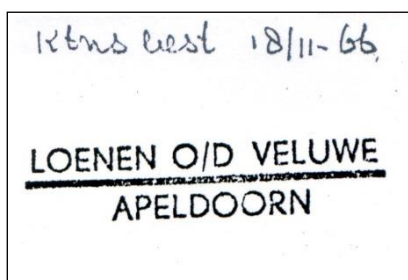 Ktns best 18/11-66.
LOENEN O/D VELUWE
APELDOORN